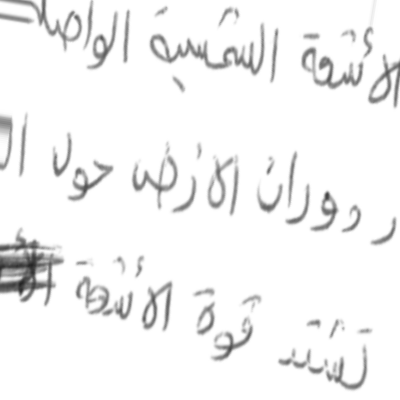 الأشعة الشمسية الواصلة
ر دوران الارض حول ال
تشتد قوة الأشعة